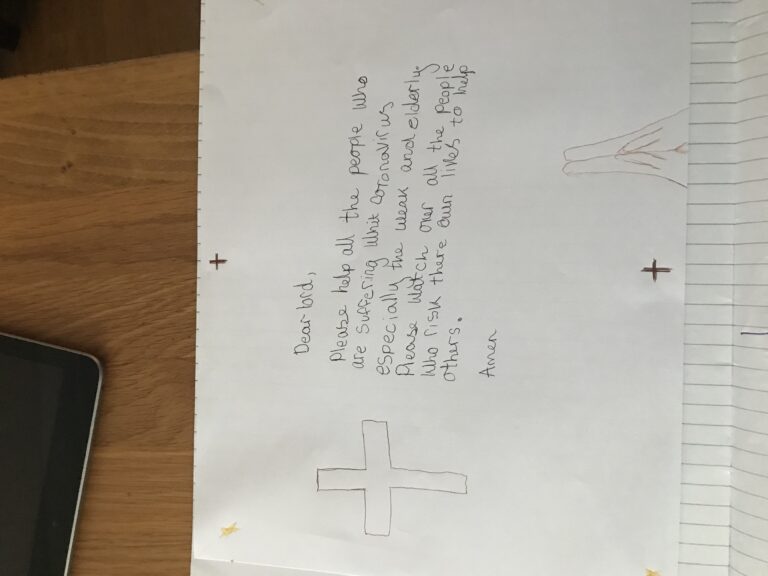 Dear lord,
Please help all the people who
are suffering whit coronavirus
especially the weak and elderly.
Please watch over all the people
who risk there own lives to help
others.
Amen